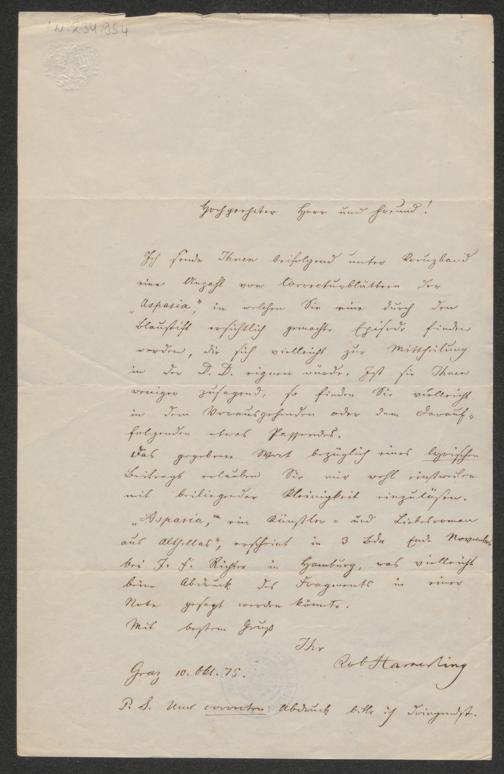 I.N. 234.954
5
Hochgeehrter Herr und Freund!
Ich sende Ihnen beifolgend unter Kreuzband
eine Anzahl von Correcturblättern der
„Aspasia“, in welchen Sie eine durch den
Blaustift ersichtlich gemachte Episode finden
werden, die sich vielleicht zur Mittheilung
in der D. D. eignen würde. Ist sie Ihnen
weniger zusagend, so finden Sie vielleicht
in dem Vorausgehenden oder dem darauf-
folgenden etwas Passendes.
Das gegebene Wort bezüglich eines lyrischen
Beitrags erlauben Sie mir wohl einstweilen
mit beiliegender Kleinigkeit einzulösen.
„Aspasia, ein Künstler- und Liebesroman
aus Althellas“, erscheint in 3 Bdn Ende November
bei J. F. Richter in Hamburg, was vielleicht
beim Abdruck des Fragments in einer
Note gesagt werden könnte.
Mit bestem Gruß
Ihr
Rob Hamerling
Graz 10. Okt. 75.
P. S. Um correcten Abdruck bitte ich dringendst.